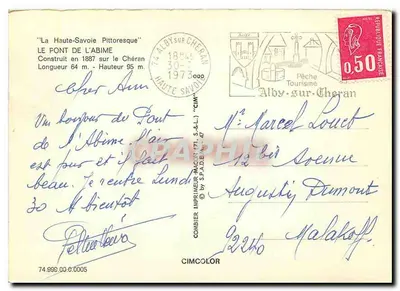 "La Haute-Savoie Pittoresque"
LE PONT DE L'ABIME
Construit en 1887 sur le Chéran
Longueur 64 m. - Hauteur 95 m.
74 ALBY SUR CHERAN
1973
HAUTE SAVOIE
Pêche
Tourisme
Alby-sur-Cheran
REPUBLIQUE FRANÇAISE
0,50
Cher Ami
Un bonjour du Pont
de l'Abime l'air
est pur et il fait
beau. Je rentre Lundi
30 bientot
Mr Marcel
12 Avenue
Augustin Dumont
92240 Malakoff
COMBIER IMPRIMEUR MACON
© by S.P.A.D.E.M.
74.998.00.0.0005
CIMCOLOR